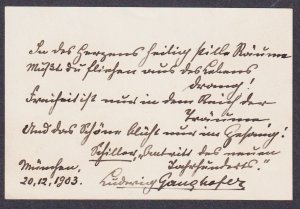 In des Herzens heilig stille Räume
Mußt du fliehen aus des Lebens
Drang!
Freiheit ist nur in dem Reich der
Träume,
Und das Schöne blüht nur im Gesang!
Schiller, „Antritt des neuen
Jahrhunderts."
München,
20.12.1903.
Ludwig Ganghofer